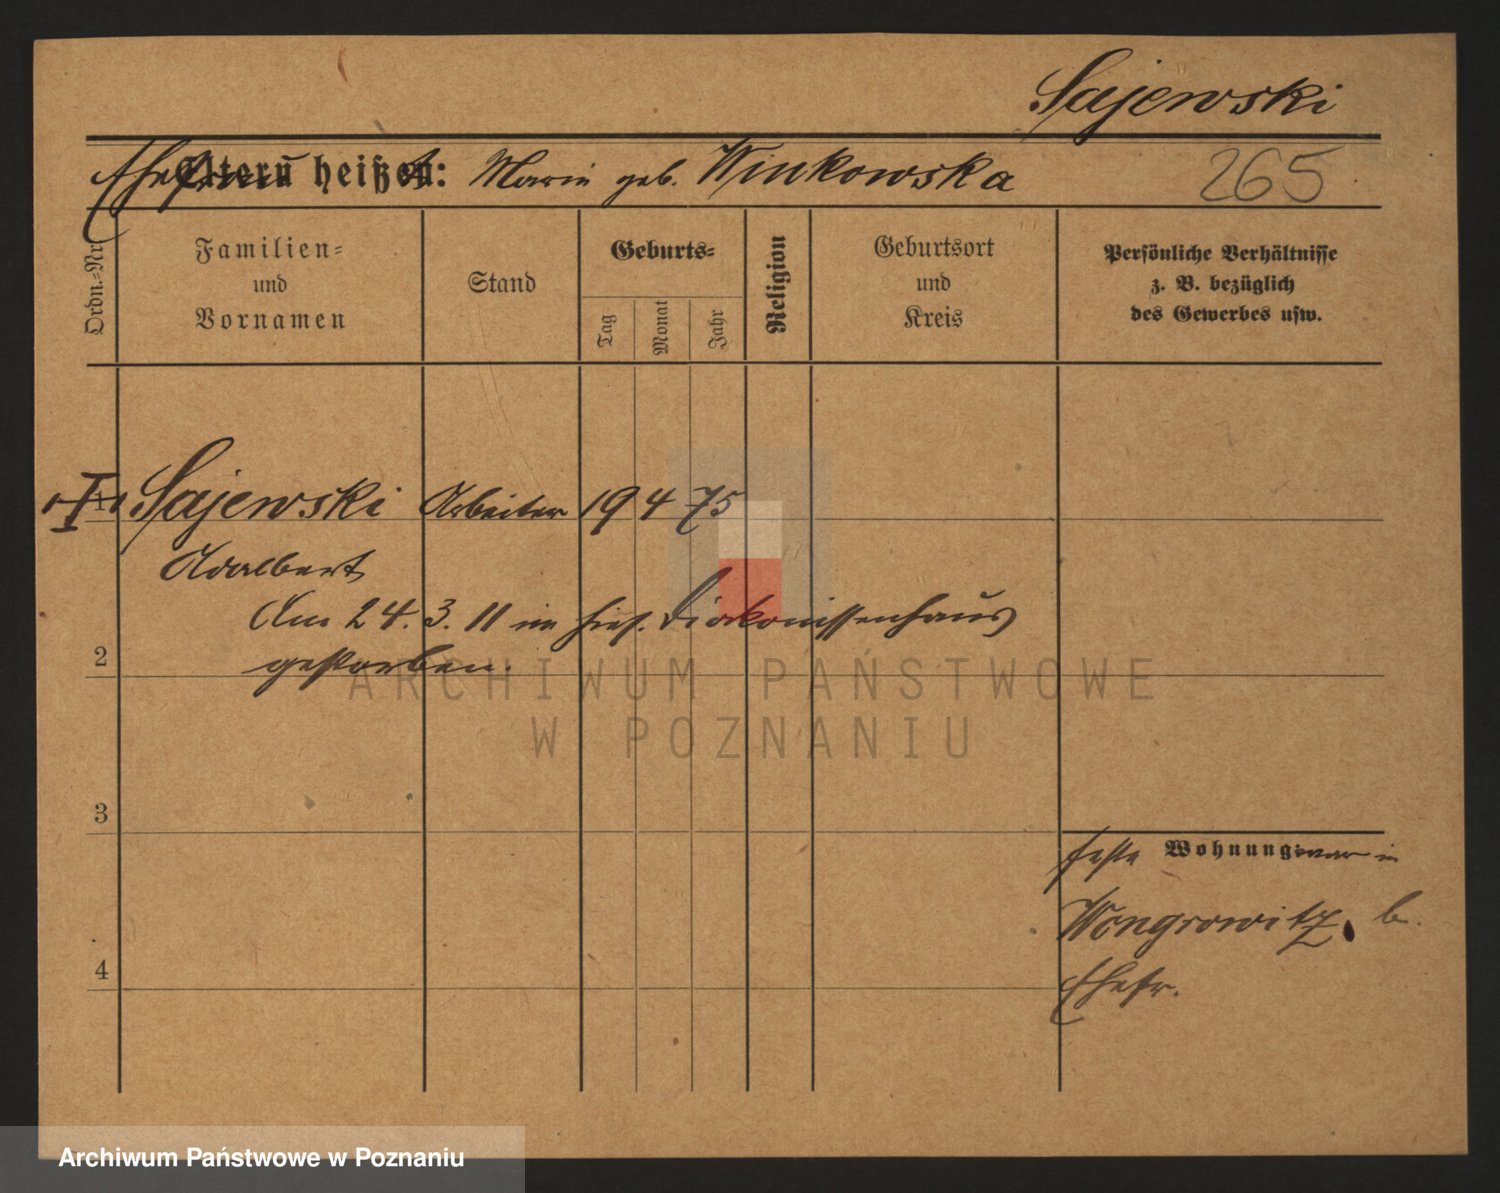 Sajewski
Ehefrau Eltern heißen: Marie geb. Winkowska
265
Ordn.-Nr.
Familien-
und
Vornamen
Stand
Geburts-
Tag
Monat
Jahr
Religion
Geburtsort
und
Kreis
Persönliche Verhältnisse
z. B. bezüglich
des Gewerbes usw.
1 Sajewski Arbeiter 19 4 75
Adalbert
Am 24.3.11 im hies. Diakonissenhaus
2 gestorben.
3
feste Wohnung war in
Wongrowitz, b.
4 Ehefr.
ARCHIWUM PAŃSTWOWE
W POZNANIU
Archiwum Państwowe w Poznaniu